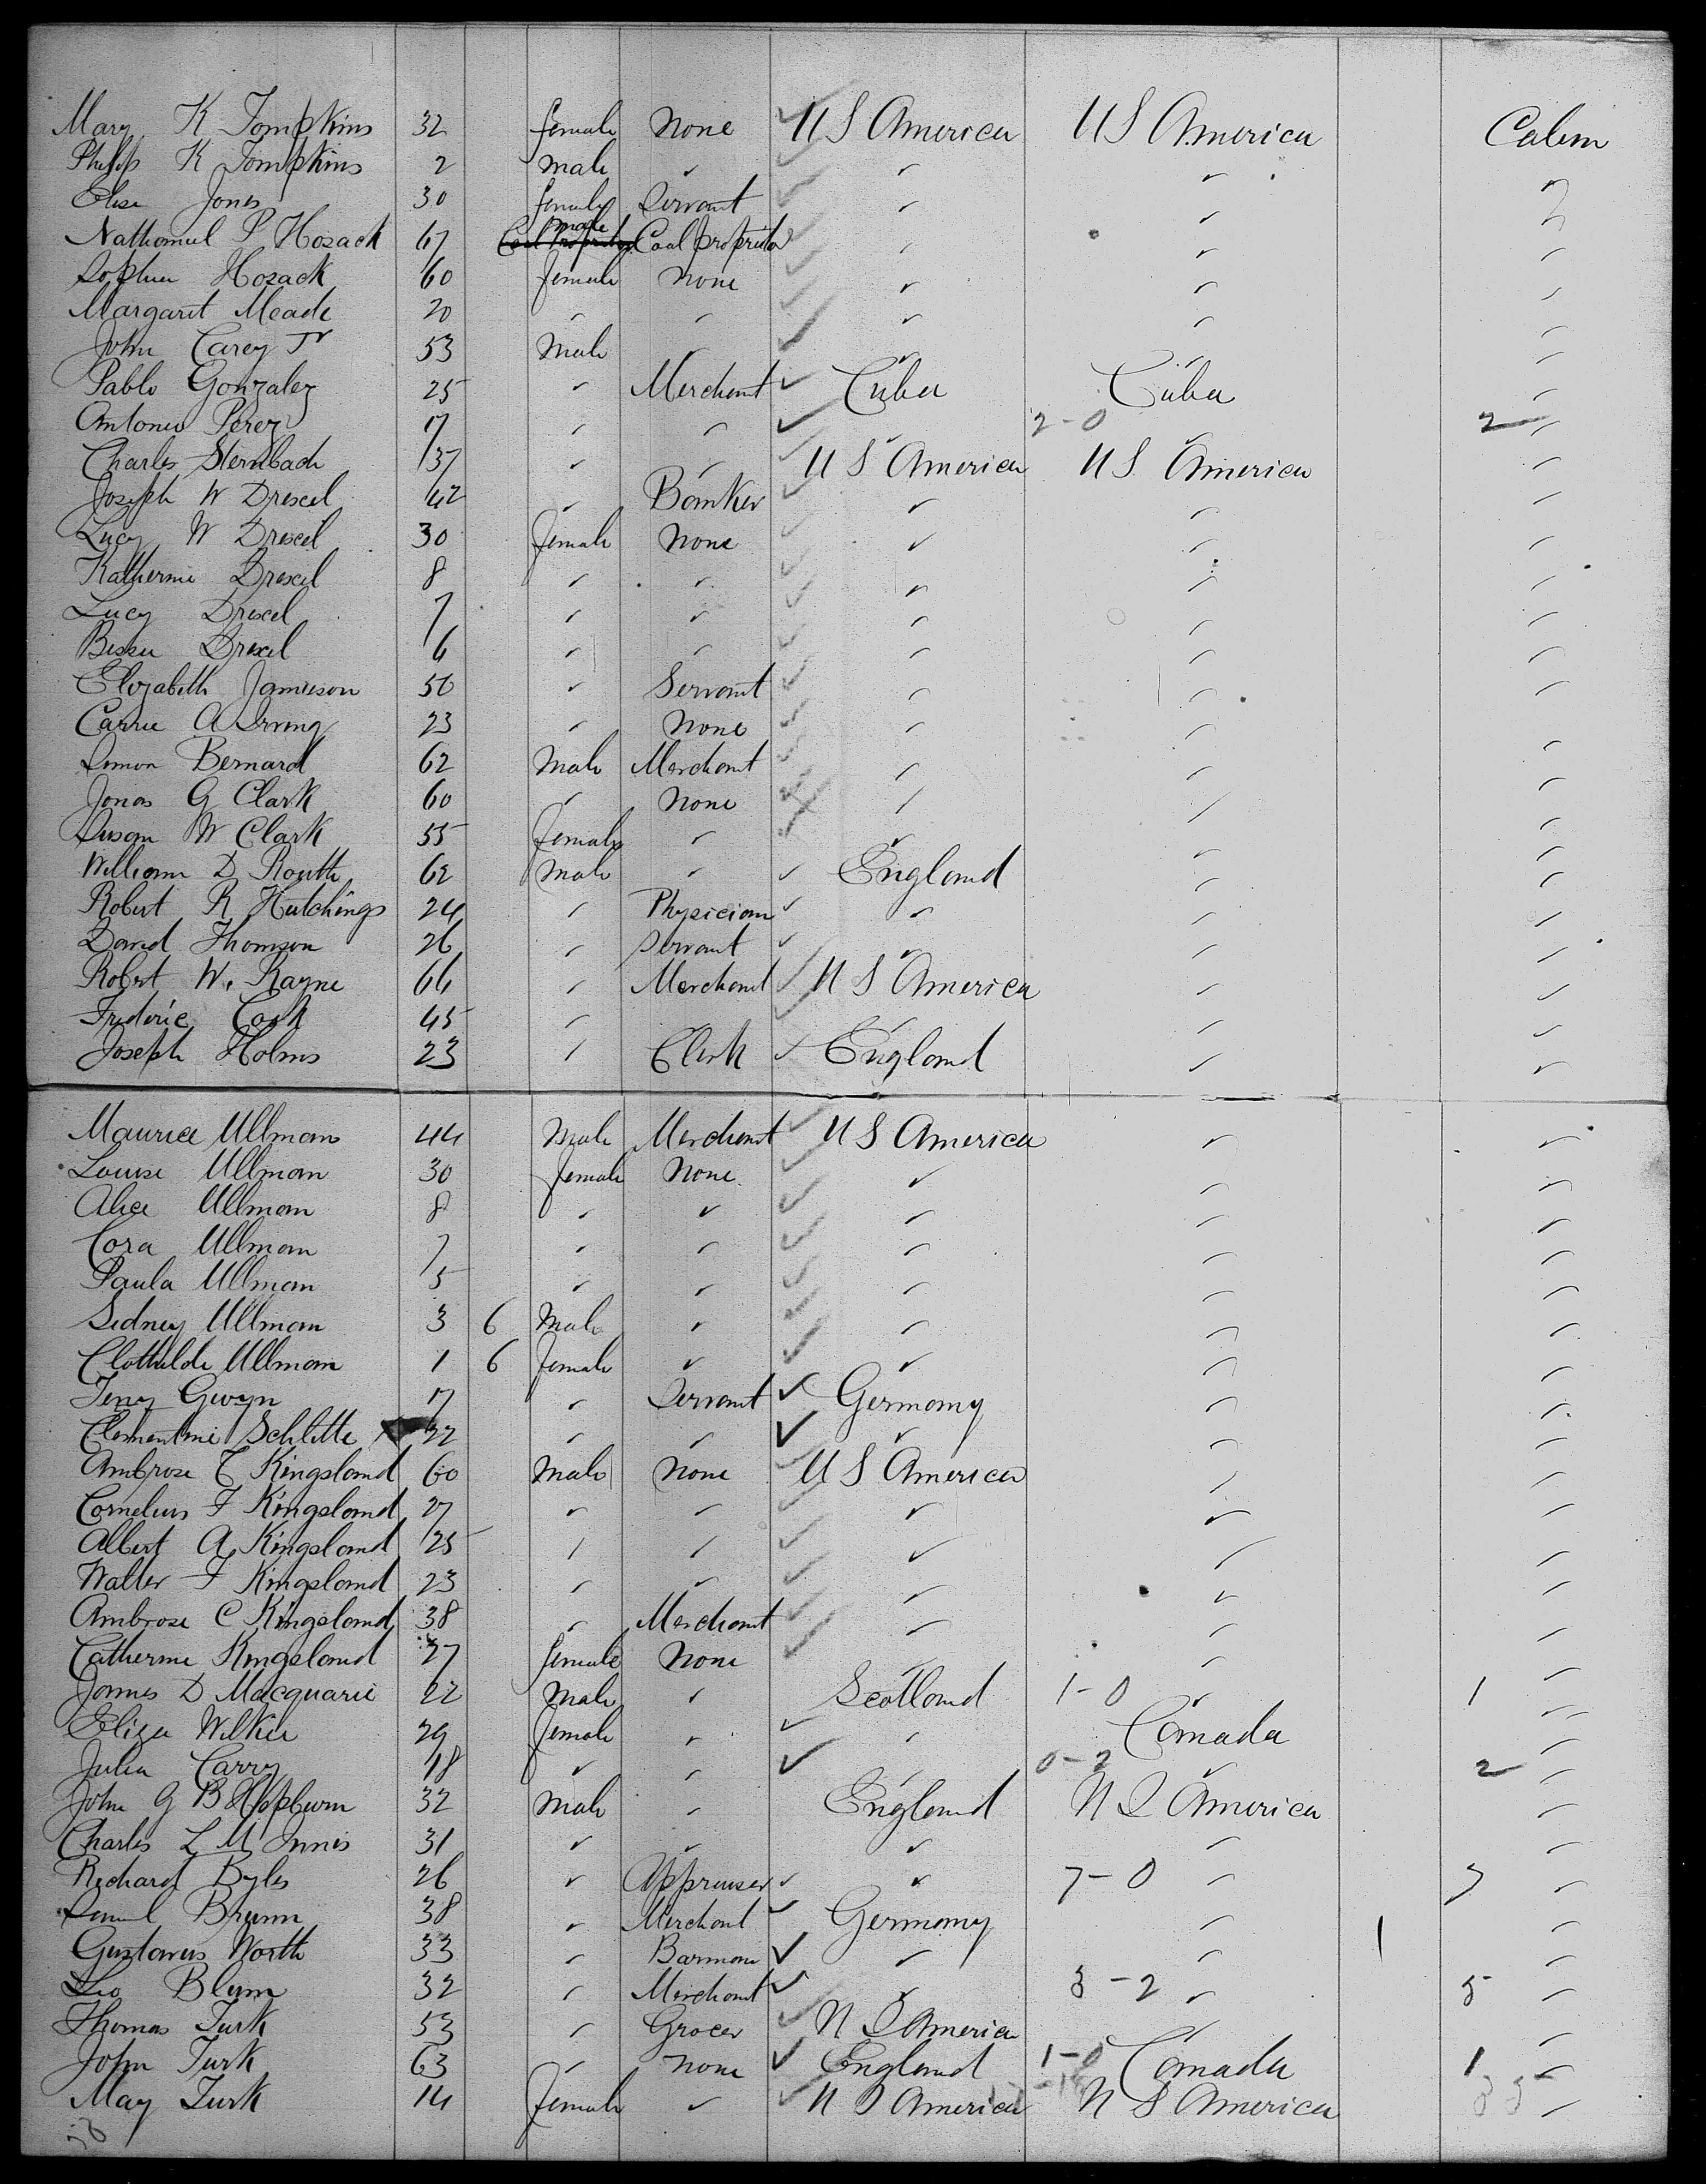 Mary K Tompkins 32 female None U S America U S America Cabin
Philip K Tompkins 2 male " " " "
Elise Jones 30 female Servant " " "
Nathanuel P Hosack 67 male Coal proprietor " " "
Sophia Hosack 60 female None " " "
Margaret Meade 20 " " " " "
John Carey Jr 53 Male " " " "
Pablo Gonzalez 25 " Merchant Cuba Cuba "
Antonio Perez 17 " " " 2-0 " 2 "
Charles Sternbach 37 " " U S America U S America "
Joseph W Drexel 42 " Banker " " "
Lucy W Drexel 30 female None " " "
Katherine Drexel 8 " " " " "
Lucy Drexel 7 " " " " "
Bessie Drexel 6 " " " " "
Elizabeth Jamieson 50 " Servant " " "
Carrie A Irving 23 " None " " "
Simon Bernard 62 Male Merchant " " "
Jonas G Clark 60 " None " " "
Susan W Clark 55 female " " " "
William D Routh 62 Male " England " "
Robert R Hutchings 24 " Physician " " "
David Thomson 26 " Servant " " "
Robert W. Rayne 66 " Merchant U S America " "
Frederic Cook 45 " " " "
Joseph Holms 23 " Clerk England " "
Maurice Ullman 44 Male Merchant U S America " "
Louise Ullman 30 female None " " "
Alice Ullman 8 " " " " "
Cora Ullman 7 " " " " "
Paula Ullman 5 " " " " "
Sidney Ullman 3 6 Male " " " "
Clothilde Ullman 1 6 female " " " "
Jeny Gwyn 17 " Servant Germany " "
Clementine Schlitte 22 " " " " "
Ambrose C Kingsland 60 Male None U S America " "
Cornelius F Kingsland 27 " " " " "
Albert A Kingsland 25 " " " " "
Walter F Kingsland 23 " " " " "
Ambrose C Kingsland 38 " Merchant " " "
Catherine Kingsland 27 female None " " "
James D Macquarie 22 Male " Scotland 1-0 " 1 "
Eliza Wilkie 29 female " " Canada "
Julia Carry 18 " " " 0-2 " 2 "
John G B Hepburn 32 Male " England N S America "
Charles L M Innis 31 " " " " "
Richard Byles 26 " Appraiser " 7-0 " 7 "
Brunn 38 " Merchant Germany " 1 "
Gustavus North 33 " Barman " " "
Leo Blum 32 " Merchant " 3-2 " 5 "
Thomas Turk 53 " Grocer N S America " "
John Turk 63 " None England 1-0 Canada 1 "
May Turk 14 female " N S America N S America "